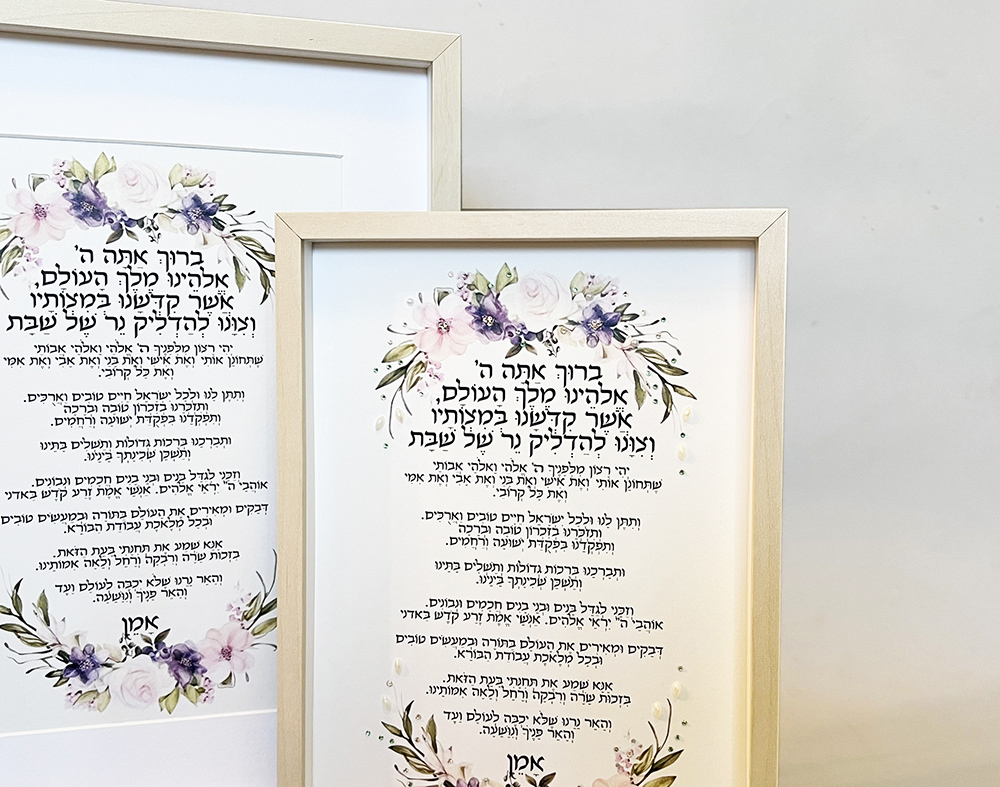 בָּרוּךְ אַתָּה ה'
אֱלֹהֵינוּ מֶלֶךְ הָעוֹלָם,
אֲשֶׁר קִדְּשָׁנוּ בְּמִצְוֹתָיו
וְצִוָּנוּ לְהַדְלִיק נֵר שֶׁל שַׁבָּת
יְהִי רָצוֹן מִלְּפָנֶיךָ ה' אֱלֹהַי וֵאלֹהֵי אֲבוֹתַי
שֶׁתְּחוֹנֵן אוֹתִי וְאֶת אִישִׁי וְאֶת בָּנַי וְאֶת אָבִי וְאֶת אִמִּי
וְאֶת כָּל קְרוֹבַי.
וְתִתֵּן לָנוּ וּלְכָל יִשְׂרָאֵל חַיִּים טוֹבִים וַאֲרֻכִּים.
וְתִזְכְּרֵנוּ בְּזִכְרוֹן טוֹבָה וּבְרָכָה
וְתִפְקְדֵנוּ בִּפְקֻדַּת יְשׁוּעָה וְרַחֲמִים.
וּתְבָרְכֵנוּ בְּרָכוֹת גְּדוֹלוֹת וְתַשְׁלִים בָּתֵּינוּ
וְתַשְׁכֵּן שְׁכִינָתְךָ בֵּינֵינוּ.
וְזַכֵּנִי לְגַדֵּל בָּנִים וּבְנֵי בָנִים חֲכָמִים וּנְבוֹנִים.
אוֹהֲבֵי ה' יִרְאֵי אֱלֹהִים. אַנְשֵׁי אֱמֶת זֶרַע קֹדֶשׁ בַּאדֹנָי
דְּבֵקִים וּמְאִירִים אֶת הָעוֹלָם בַּתּוֹרָה וּבְמַעֲשִׂים טוֹבִים
וּבְכָל מְלֶאכֶת עֲבוֹדַת הַבּוֹרֵא.
אָנָּא שְׁמַע אֶת תְּחִנָּתִי בָּעֵת הַזֹּאת.
בִּזְכוּת שָׂרָה וְרִבְקָה וְרָחֵל וְלֵאָה אִמּוֹתֵינוּ.
וְהָאֵר נֵרֵנוּ שֶׁלֹּא יִכְבֶּה לְעוֹלָם וָעֶד
וְהָאֵר פָּנֶיךָ וְנִוָּשֵׁעָה.
אָמֵן
בָּרוּךְ אַתָּה ה'
אֱלֹהֵינוּ מֶלֶךְ הָעוֹלָם,
אֲשֶׁר קִדְּשָׁנוּ בְּמִצְוֹתָיו
וְצִוָּנוּ לְהַדְלִיק נֵר שֶׁל שַׁבָּת
יְהִי רָצוֹן מִלְּפָנֶיךָ ה' אֱלֹהַי וֵאלֹהֵי אֲבוֹתַי
שֶׁתְּחוֹנֵן אוֹתִי וְאֶת אִישִׁי וְאֶת בָּנַי וְאֶת אָבִי וְאֶת אִמִּי
וְאֶת כָּל קְרוֹבַי.
וְתִתֵּן לָנוּ וּלְכָל יִשְׂרָאֵל חַיִּים טוֹבִים וַאֲרֻכִּים.
וְתִזְכְּרֵנוּ בְּזִכְרוֹן טוֹבָה וּבְרָכָה
וְתִפְקְדֵנוּ בִּפְקֻדַּת יְשׁוּעָה וְרַחֲמִים.
וּתְבָרְכֵנוּ בְּרָכוֹת גְּדוֹלוֹת וְתַשְׁלִים בָּתֵּינוּ
וְתַשְׁכֵּן שְׁכִינָתְךָ בֵּינֵינוּ.
וְזַכֵּנִי לְגַדֵּל בָּנִים וּבְנֵי בָנִים חֲכָמִים וּנְבוֹנִים.
אוֹהֲבֵי ה' יִרְאֵי אֱלֹהִים. אַנְשֵׁי אֱמֶת זֶרַע קֹדֶשׁ בַּאדֹנָי
דְּבֵקִים וּמְאִירִים אֶת הָעוֹלָם בַּתּוֹרָה וּבְמַעֲשִׂים טוֹבִים
וּבְכָל מְלֶאכֶת עֲבוֹדַת הַבּוֹרֵא.
אָנָּא שְׁמַע אֶת תְּחִנָּתִי בָּעֵת הַזֹּאת.
בִּזְכוּת שָׂרָה וְרִבְקָה וְרָחֵל וְלֵאָה אִמּוֹתֵינוּ.
וְהָאֵר נֵרֵנוּ שֶׁלֹּא יִכְבֶּה לְעוֹלָם וָעֶד
וְהָאֵר פָּנֶיךָ וְנִוָּשֵׁעָה.
אָמֵן